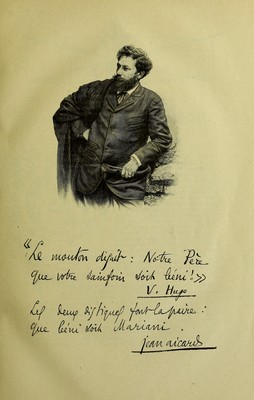 "Le mouton disait : Notre Père
que votre sainfoin soit béni ! »
V. Hugo
Les deux distiques font la paire :
que béni soit Mariani.
jean aicard